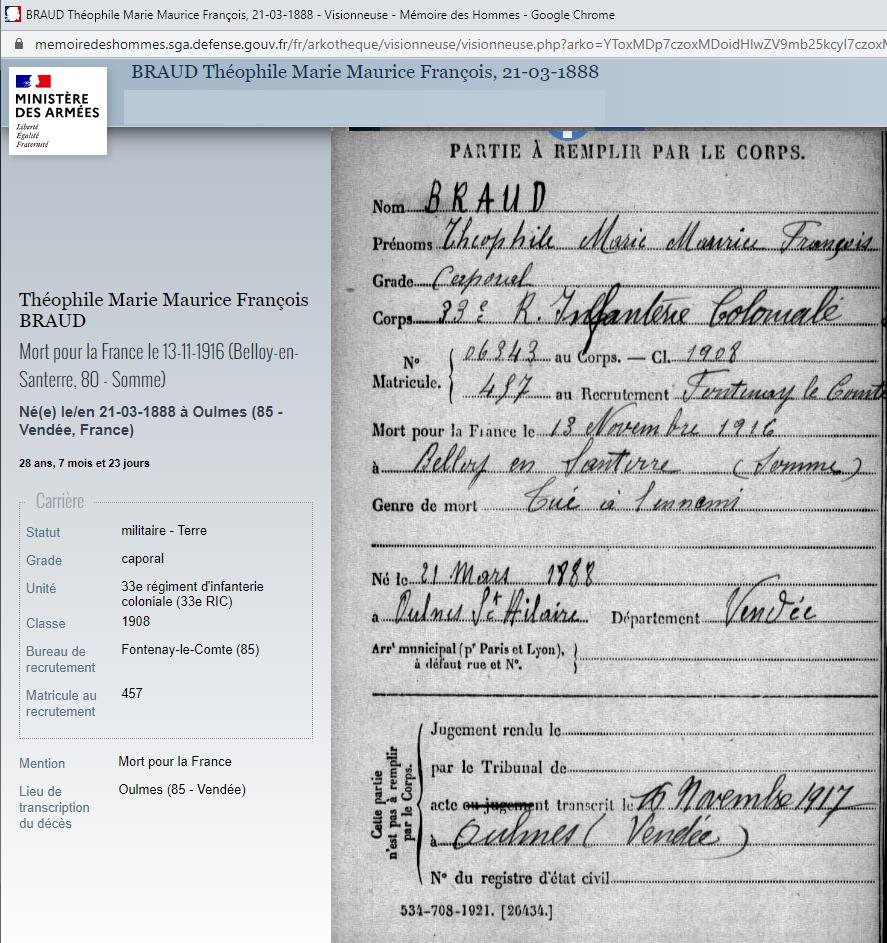 BRAUD Théophile Marie Maurice François, 21-03-1888 - Visionneuse - Mémoire des Hommes - Google Chrome
memoiredeshommes.sga.defense.gouv.fr/fr/arkotheque/visionneuse/visionneuse.php?arko=
BRAUD Théophile Marie Maurice François, 21-03-1888
MINISTÈRE
DES ARMÉES
Liberté
Égalité
Fraternité
Théophile Marie Maurice François
BRAUD
Mort pour la France le 13-11-1916 (Belloy-en-
Santerre, 80 - Somme)
Né(e) le/en 21-03-1888 à Oulmes (85 -
Vendée, France)
28 ans, 7 mois et 23 jours
Carrière
Statut militaire - Terre
Grade caporal
Unité 33e régiment d'infanterie
coloniale (33e RIC)
Classe 1908
Bureau de Fontenay-le-Comte (85)
recrutement
Matricule au 457
recrutement
Mention Mort pour la France
Lieu de Oulmes (85 - Vendée)
transcription
du décès
PARTIE À REMPLIR PAR LE CORPS.
Nom BRAUD
Prénoms Théophile Marie Maurice François
Grade Caporal
Corps 33e R. Infanterie Coloniale
No 06343 au Corps. — Cl. 1908
Matricule. 457 au Recrutement Fontenay le Comte
Mort pour la France le 13 Novembre 1916
à Belloy en Santerre (Somme)
Genre de mort Tué à l'ennemi
Né le 21 Mars 1888
à Oulmes St Hilaire Département Vendée
Arrt municipal (pr Paris et Lyon),
à défaut rue et No.
Cette partie
n'est pas à remplir
par le Corps.
Jugement rendu le
par le Tribunal de
acte ou jugement transcrit le 16 Novembre 1917
à Oulmes (Vendée)
No du registre d'état civil
534-708-1921. [26434.]